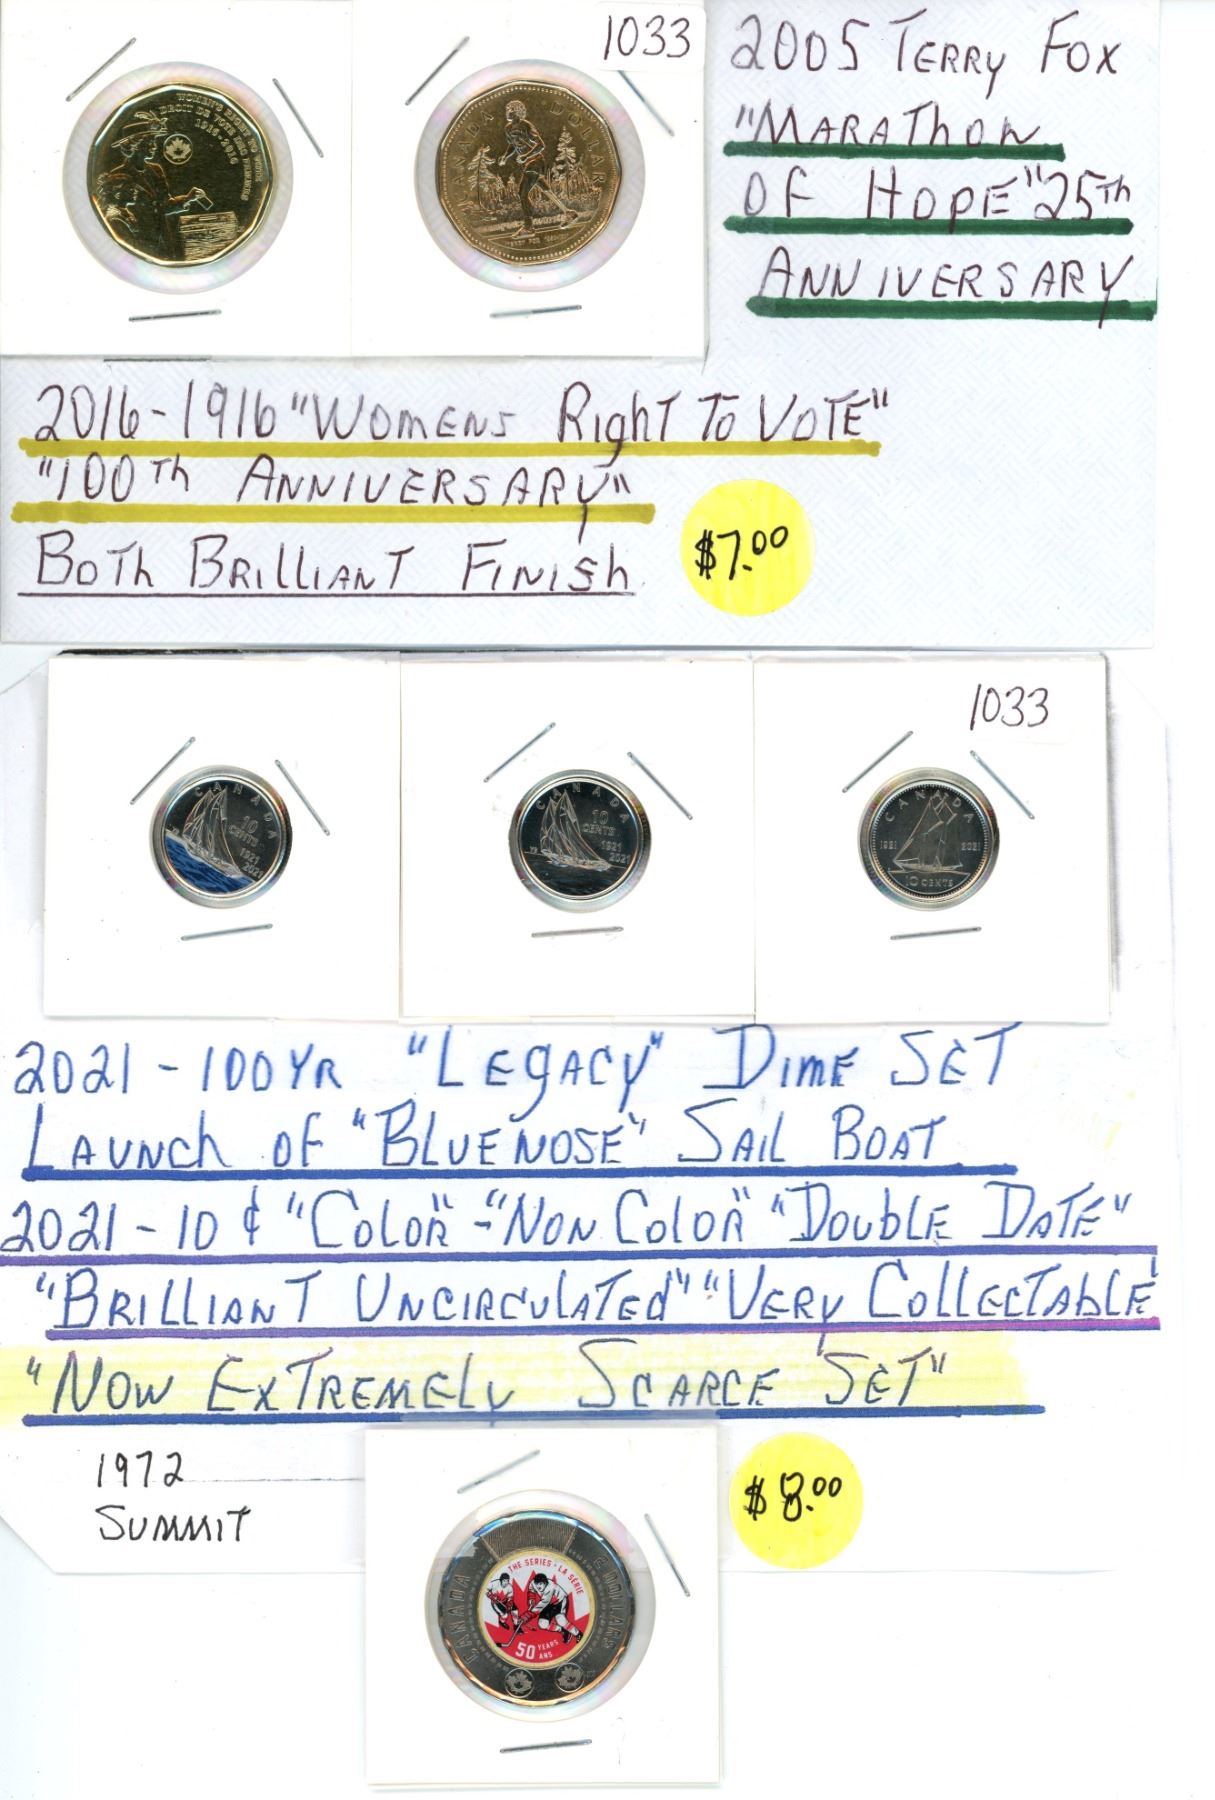 1033
WOMEN'S RIGHT TO VOTE
DROIT DE VOTE DES FEMMES
1916-2016
CANADA DOLLAR
2005 TERRY FOX
"MARATHON
OF HOPE" 25TH
ANNIVERSARY
2016-1916 "WOMENS RIGHT TO VOTE"
"100TH ANNIVERSARY"
BOTH BRILLIANT FINISH
$7.00
1033
CANADA
10
CENTS
1921
2021
CANADA
10
CENTS
1921
2021
CANADA
1921 2021
10 CENTS
2021-100YR "LEGACY" DIME SET
LAUNCH OF "BLUENOSE" SAIL BOAT
2021-10¢ "COLOR"-"NON COLOR" "DOUBLE DATE"
"BRILLIANT UNCIRCULATED" "VERY COLLECTABLE"
"NOW EXTREMELY SCARCE SET"
1972
SUMMIT
$8.00
CANADA 2 DOLLARS
THE SERIES · LA SÉRIE
50 YEARS
ANS